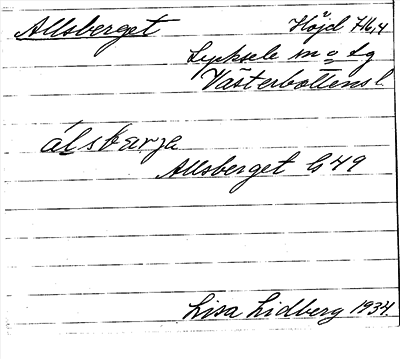 Allsberget Höjd 716,4
Lycksele m o lg
Västerbottens l.
álsbærja
Allsberget G 49
Lisa Lidberg 1934.